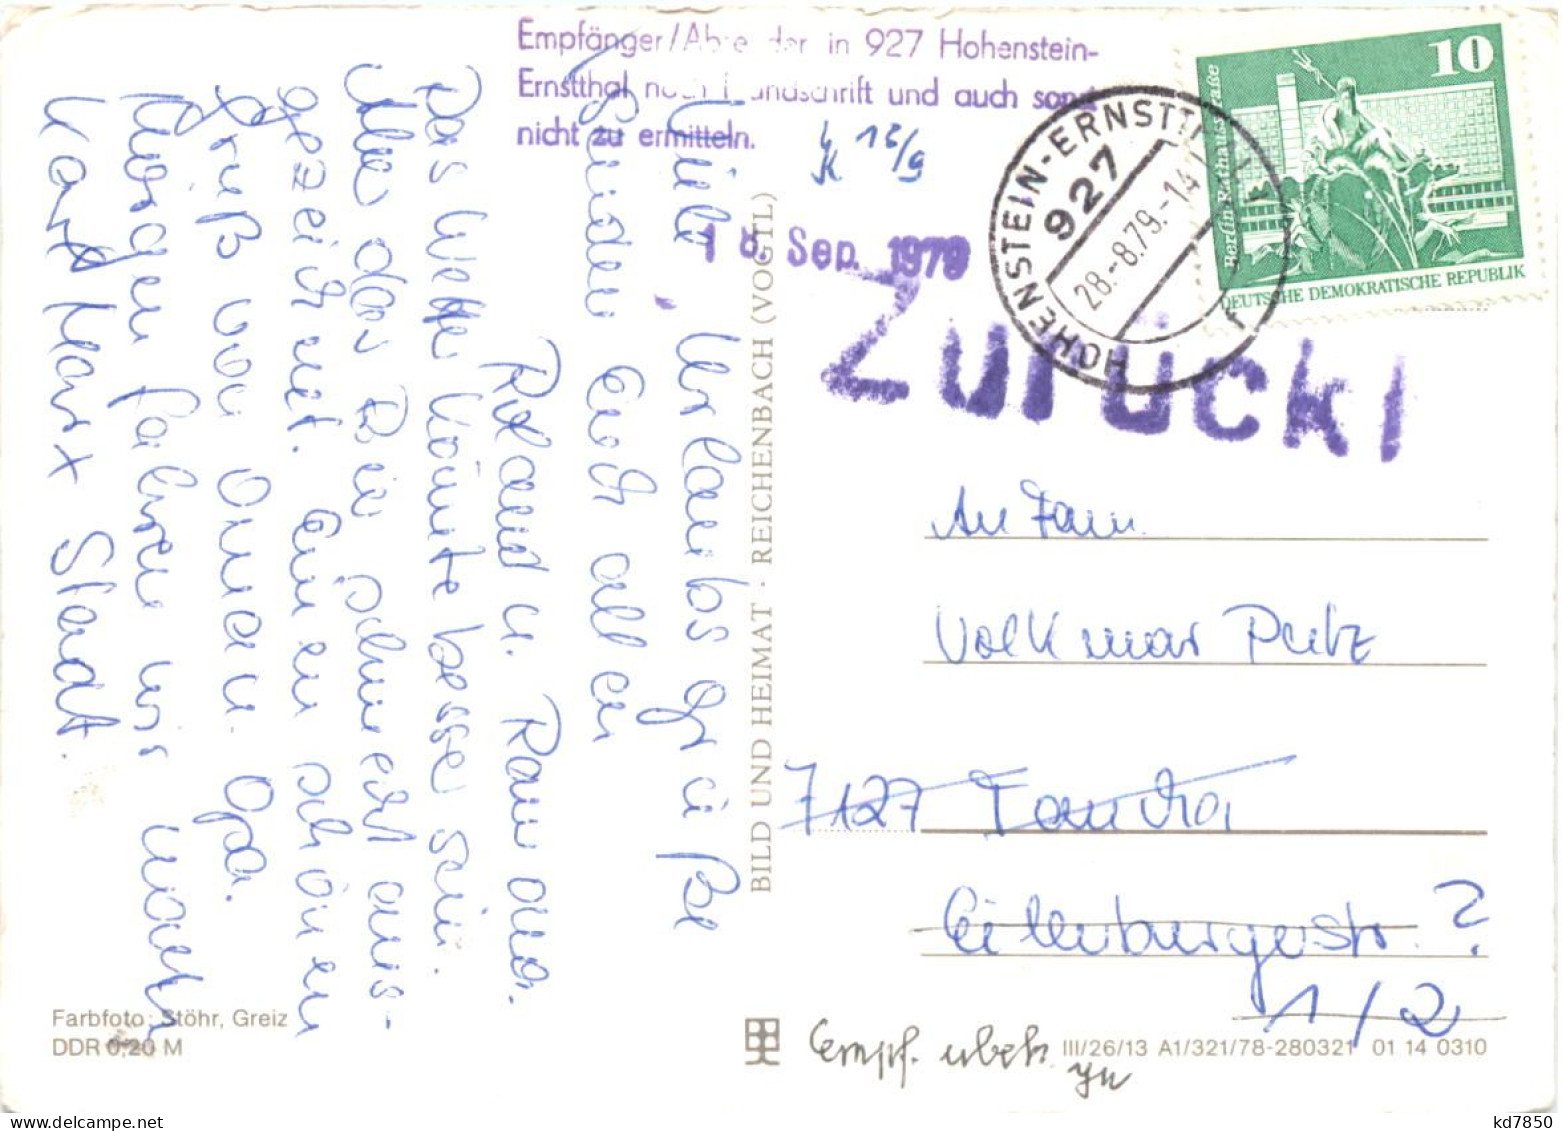 Empfänger/Absender in 927 Hohenstein-
Ernstthal nach Handschrift und auch sonst
nicht zu ermitteln.
K 12/9
18. Sep. 1979
Zurück!
HOHENSTEIN-ERNSTTHAL
927
28.-8.79.-14
10
Berlin Rathausstraße
DEUTSCHE DEMOKRATISCHE REPUBLIK
Liebe Urlaubsgrüße
senden Euch allen
Roland u. Ramona.
Das Wetter könnte besser sein.
Aber das Bier schmeckt aus-
gezeichnet. Einen schönen
Gruß von Oma u. Opa.
Morgen fahren wir nach
Karl Marx Stadt.
BILD UND HEIMAT · REICHENBACH (VOGTL)
An Fam.
Volkmar Putz
7127 Taucha
Eilenburgerstr. ?
1/2
Farbfoto: Stöhr, Greiz
DDR 0,20 M
Empf. unbek.
III/26/13 A1/321/78-280321 01 14 0310
kd7850